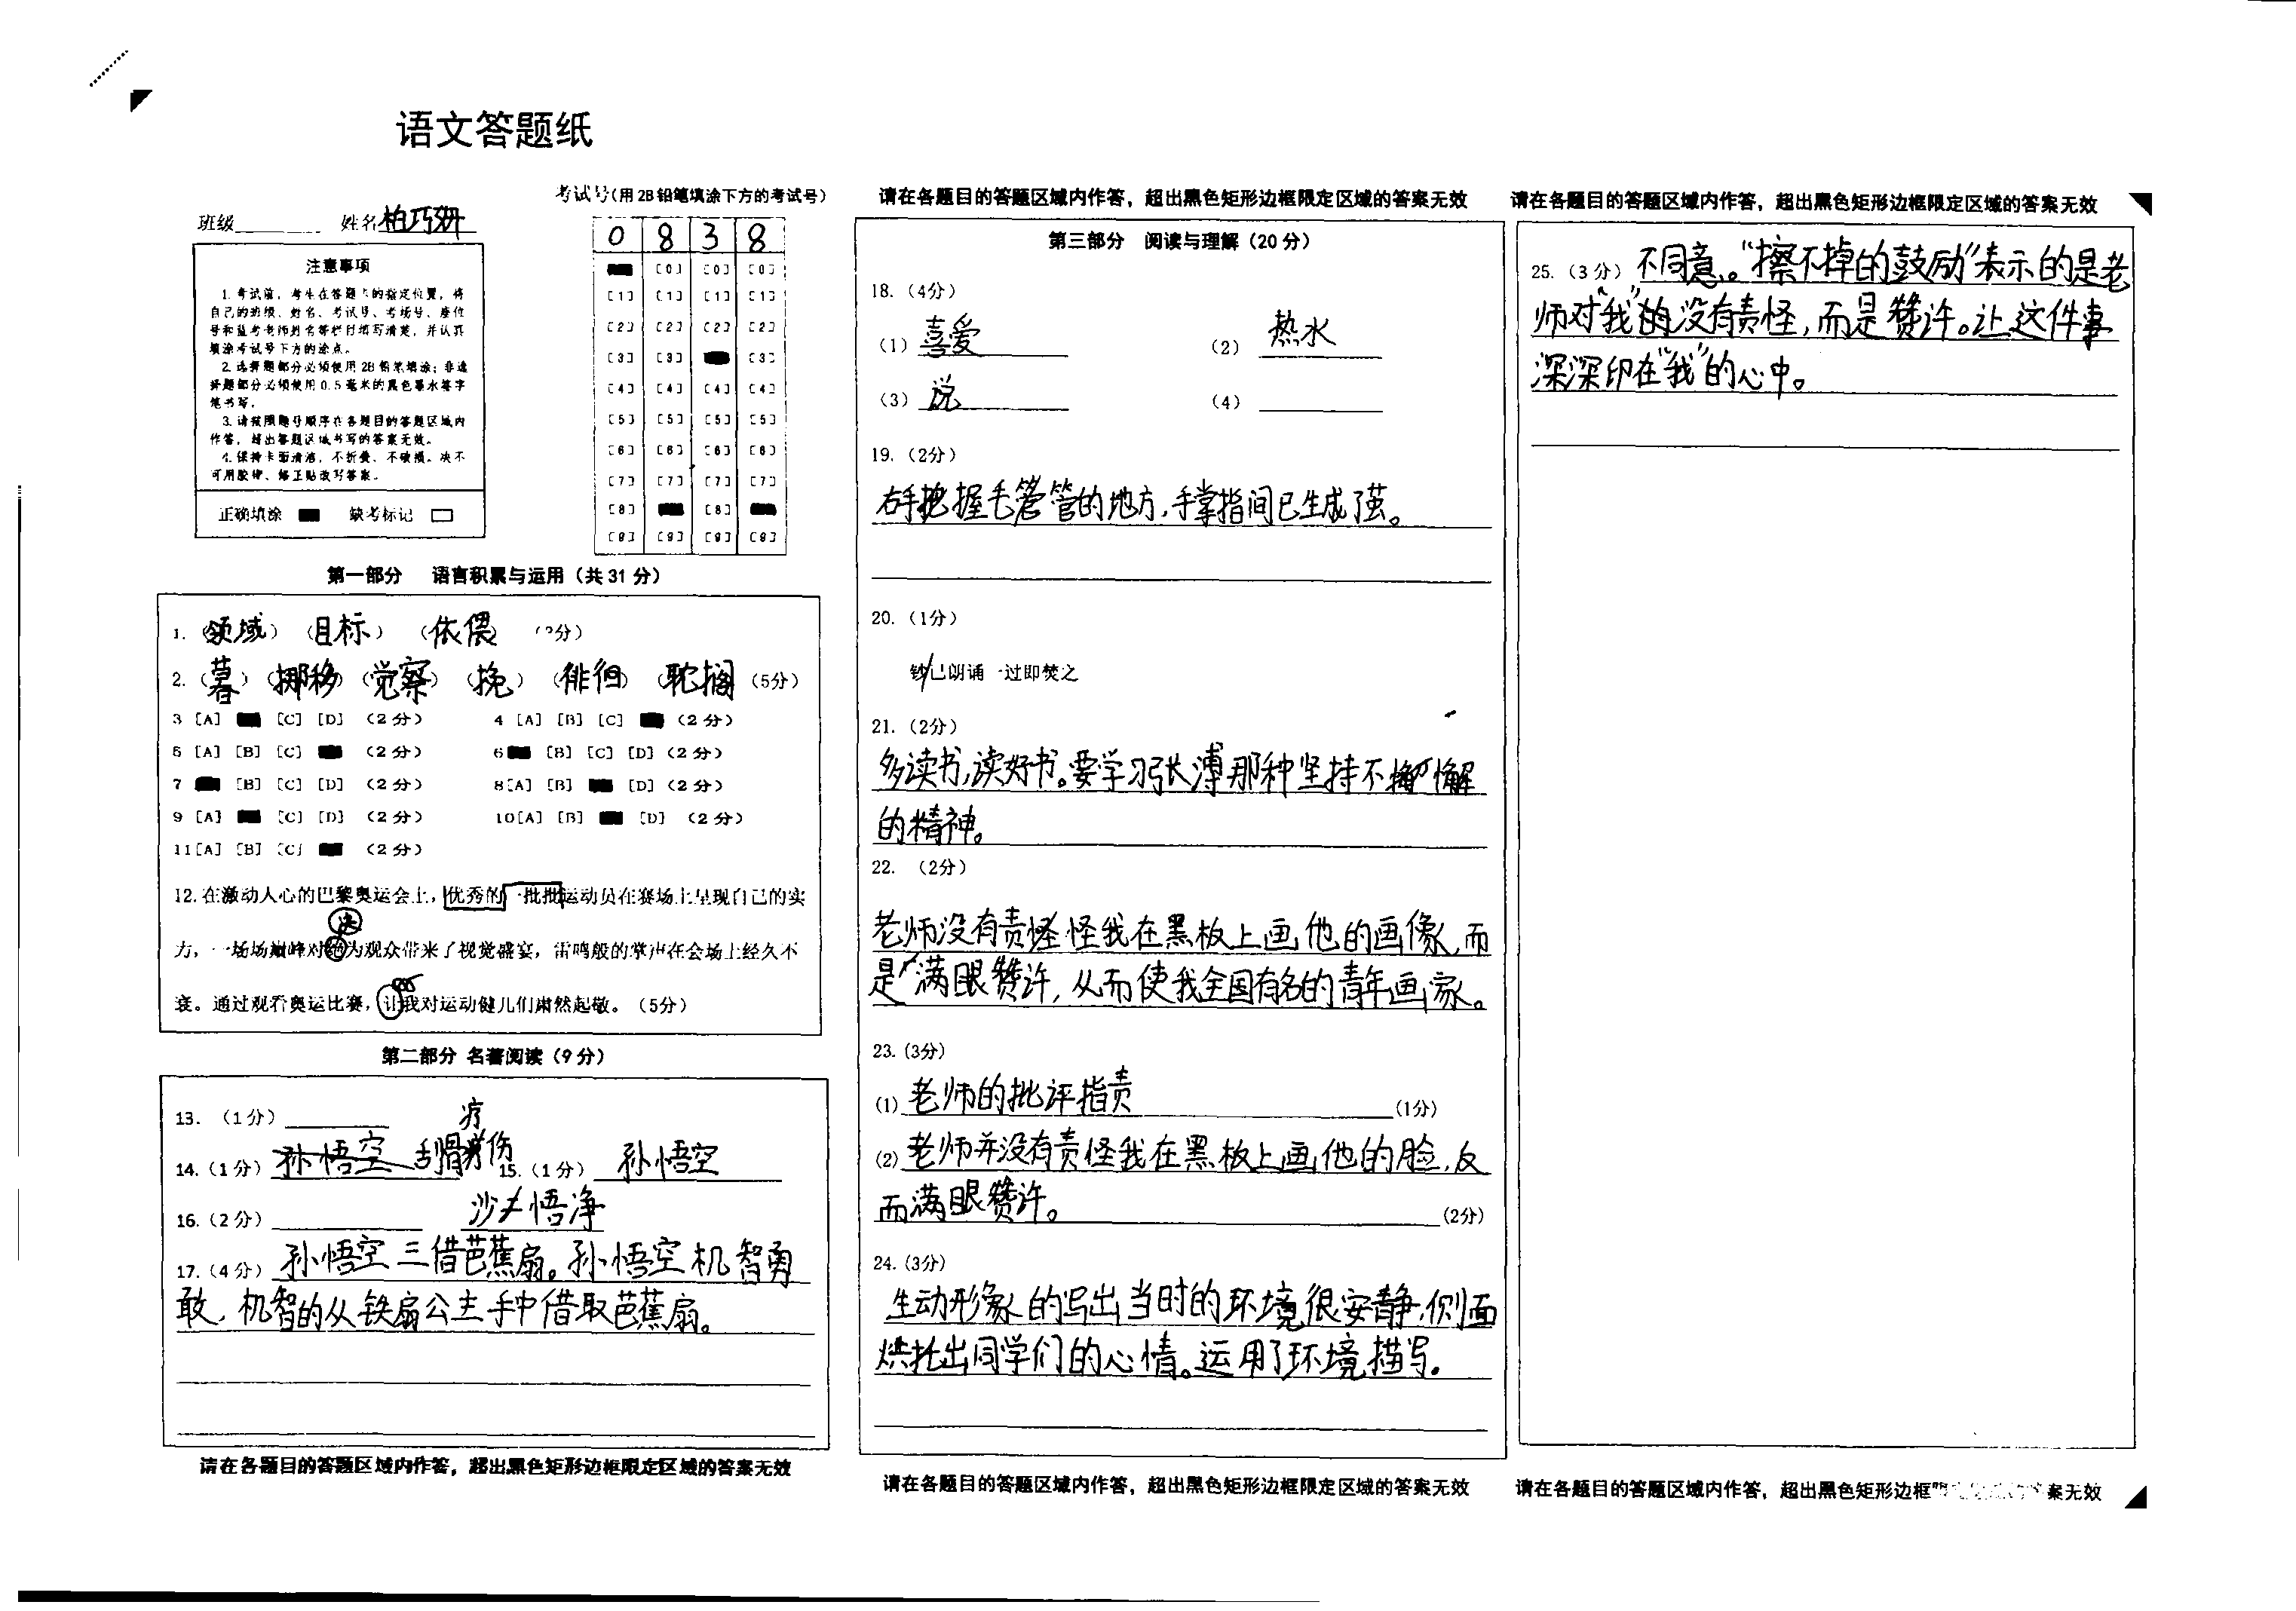 语文答题纸
班级 姓名 柏巧妍
考试号(用 2B 铅笔填涂下方的考试号)
0 8 3 8
[0] [0] [0]
[1] [1] [1] [1]
[2] [2] [2] [2]
[3] [3] [3]
[4] [4] [4] [4]
[5] [5] [5] [5]
[6] [6] [6] [6]
[7] [7] [7] [7]
[8] [8]
[9] [9] [9] [9]
注意事项
1. 考试前，考生在答题卡的指定位置，将
自己的班级、姓名、考试号、考场号、座位
号和监考老师姓名等栏目填写清楚，并认真
填涂考试号下方的涂点。
2. 选择题部分必须使用 2B 铅笔填涂；非选
择题部分必须使用 0.5 毫米的黑色墨水签字
笔书写。
3. 请按照题号顺序在各题目的答题区域内
作答，超出答题区域书写的答案无效。
4. 保持卡面清洁，不折叠、不破损。决不
可用胶带、修正贴改写答案。
正确填涂 缺考标记
第一部分 语言积累与运用（共 31 分）
1. （领域）（目标）（依偎）
2. （暮）（挪移）（觉察）（挽）（徘徊）（耽搁）（5分）
3 [A] [C] [D] （2 分） 4 [A] [B] [C] （2 分）
5 [A] [B] [C] （2 分） 6 [B] [C] [D] （2 分）
7 [B] [C] [D] （2 分） 8 [A] [B] [D] （2 分）
9 [A] [C] [D] （2 分） 10 [A] [B] [D] （2 分）
11 [A] [B] [C] （2 分）
12. 在激动人心的巴黎奥运会上，优秀的一批批运动员在赛场上呈现自己的实
决
力，一场场巅峰对绝为观众带来了视觉盛宴，雷鸣般的掌声在会场上经久不
衰。通过观看奥运比赛，让我对运动健儿们肃然起敬。（5分）
第二部分 名著阅读（9 分）
13. （1 分）
14. （1 分）孙悟空 刮骨疗伤 15. （1 分）孙悟空
16. （2 分） 沙悟净
17. （4 分）孙悟空三借芭蕉扇。孙悟空机智勇
敢，机智的从铁扇公主手中借取芭蕉扇。
请在各题目的答题区域内作答，超出黑色矩形边框限定区域的答案无效
请在各题目的答题区域内作答，超出黑色矩形边框限定区域的答案无效
第三部分 阅读与理解（20 分）
18. （4分）
（1）喜爱 （2）热水
（3）说 （4）
19. （2分）
右手把握毛管的地方，手掌指间已生成了茧。
20. （1分）
钞/已朗诵一过即焚之
21. （2分）
多读书，读好书。要学习张溥那种坚持不懈
的精神。
22. （2分）
老师没有责怪怪我在黑板上画他的画像，而
是满眼赞许，从而使我全国有名的青年画家。
23. (3分)
(1) 老师的批评指责 (1分)
(2) 老师并没有责怪我在黑板上画他的脸，反
而满眼赞许。 (2分)
24. (3分)
生动形象的写出当时的环境很安静，侧面
烘托出同学们的心情。运用了环境描写。
请在各题目的答题区域内作答，超出黑色矩形边框限定区域的答案无效
请在各题目的答题区域内作答，超出黑色矩形边框限定区域的答案无效
25. （3 分）不同意。“擦不掉的鼓励”表示的是老
师对“我”的没有责怪，而是赞许。让这件事
深深印在“我”的心中。
请在各题目的答题区域内作答，超出黑色矩形边框 案无效